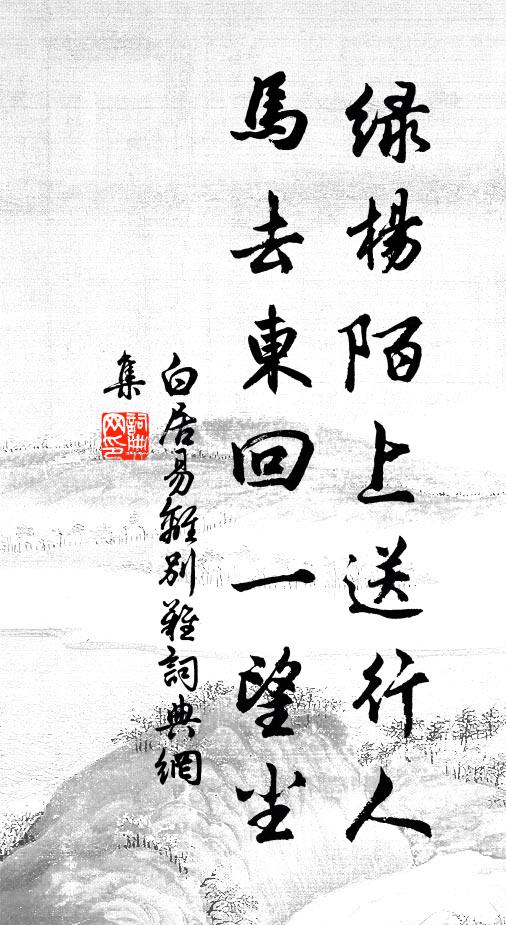 绿楊陌上送行人
馬去東回一望尘
白居易離别難詞典網
集
詞典
网印